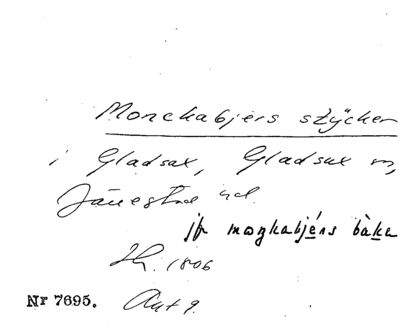 Monckabjers stÿcken
i Gladsax, Gladsax sn,
Järrestad hd.
jfr moŋkabjérs bàka
Ih. 1806
Nr 7695. Akt 9.